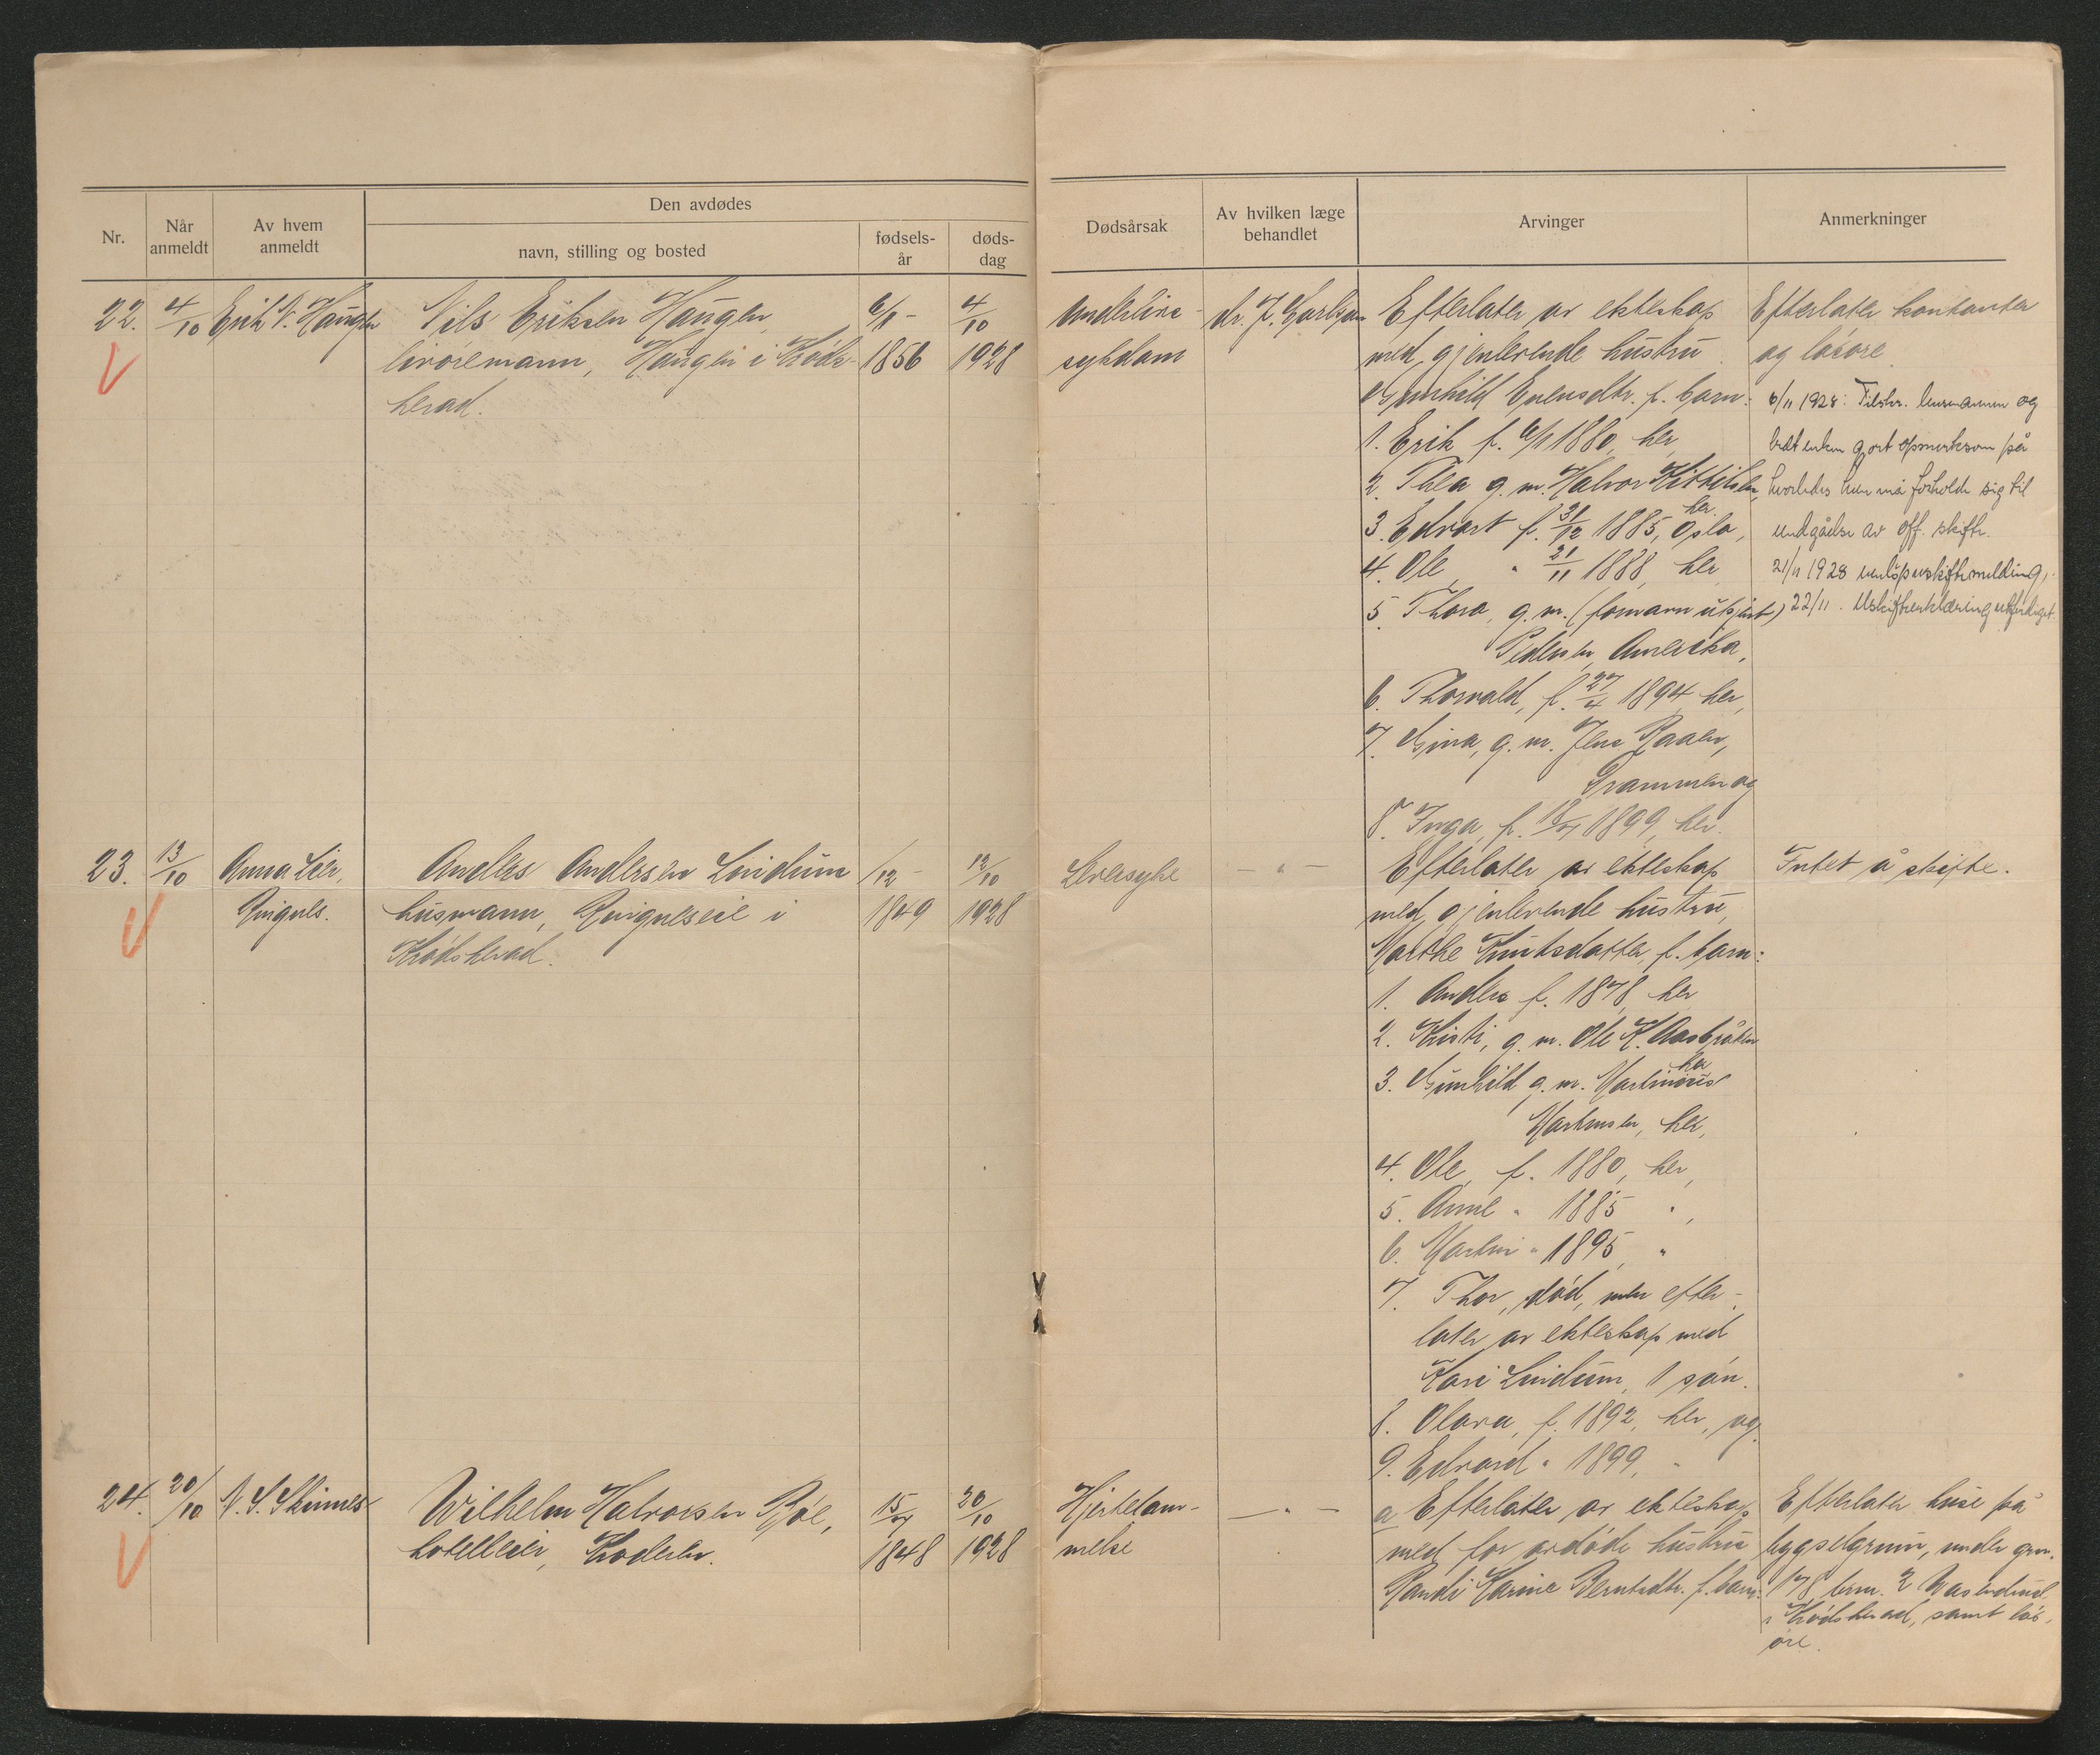 Nr.
Når anmeldt
Av hvem anmeldt
Den avdødes
navn, stilling og bosted
fødsels-år
døds-dag
Dødsårsak
Av hvilken læge behandlet
Arvinger
Anmerkninger
22. 4/10 Erik N. Haugen
Nils Eriksen Haugen
livöremann, Haugen i Kröds-
herad.
6/11 -
1856
4/10
1928
Underlivs-
sykdom
dr. J.
Efterlater av ekteskap
med gjenlevende hustru
Gunhild Evensdtr. f. barn:
1. Erik f. 6/1 1880, her
2. Thea g. m. Halvor Kittilsen,
her.
3. Edvart f. 31/12 1885, Oslo,
4. Ole " 21/11 1888, her
5. Thora, g. m. (fornavn ukjent)
Pedersen, Amerika,
6. Thorvald, f. 27/4 1894 her,
7. Gina, g. m. Jens Raaen,
Drammen og
8. Inga, f. 1899, her.
Efterlater kontanter
og lösöre
6/11 1928: Tilskr. lensmannen og
bedt enken gjort opmerksom på
hvorledes hun må forholde sig til
undgåelse av off. skifte.
21/11 1928 innlöp uskiftemelding,
22/11. Uskifteerklæring utferdiget.
23. 13/10 Anna Lien,
Ringnes.
Anders Andersen Lindum
husmann, Ringneseie i
Krödsherad.
/12 -
1849
12/10
1928
Leversyke
— " —
Efterlater av ekteskap
med gjenlevende hustru,
Marthe Knutsdatter, f. barn:
1. Anders f. 1878, her
2. Kristi, g. m. Ole K. Aasbråten
her
3. Gunhild g. m. Martinius
Martinsen, her,
4. Ole, f. 1880, her,
5. Anne " 1885 ",
6. Martin " 1895, "
7. Thor, död, men efter-
later av ekteskap med
Kari Lindum, 1 sön.
8. Olava, f. 1892, her, og
9. Edvard " 1899, "
Intet å skifte.
24. 20/10 N. S. Skinnes
Wilhelm Halvorsen Björe,
hotelleier, Kröderen.
15/
1848
20/10
1928
Hjertelam-
melse
— " —
a Efterlater av ekteskap
med for avdöde hustru
Randi Karine Berntsdtr. f. barn:
Efterlater huse på
bygselgrunn, under gnr.
brnr. 2
i Krödsherad, samt lös-
öre.